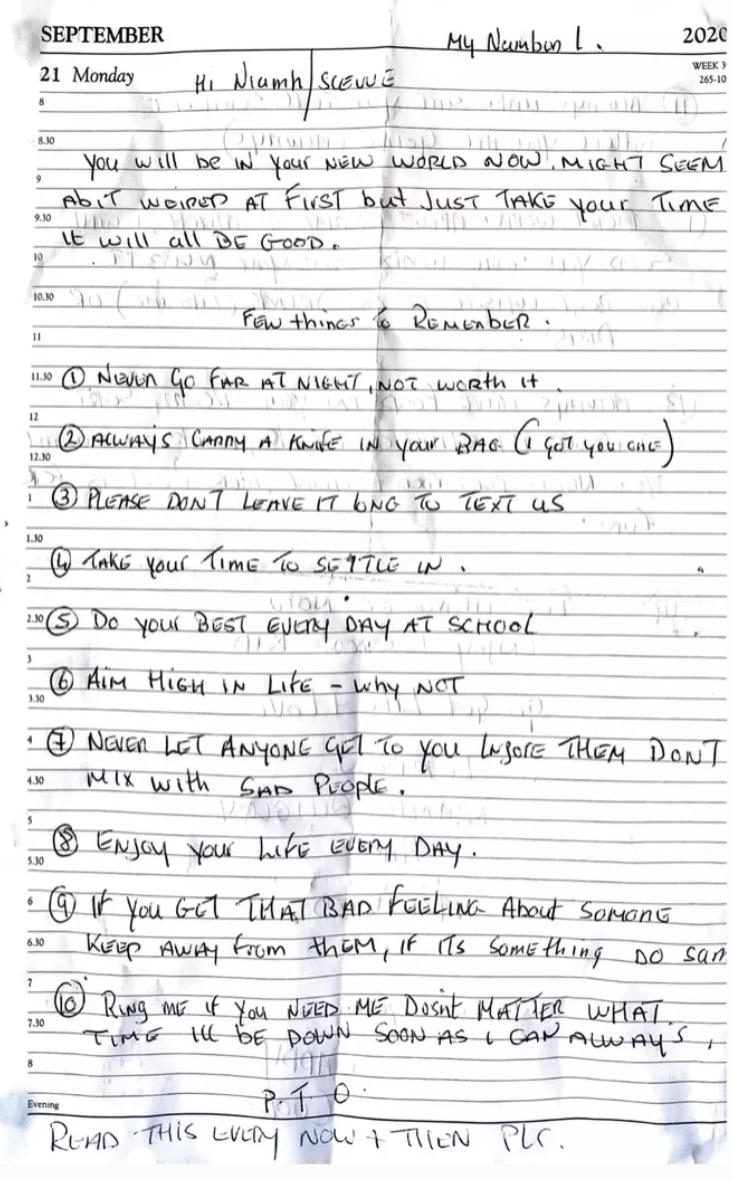 SEPTEMBER My Number 1. 2020
21 Monday Hi Niamh/ WEEK 3
265-10
8
8.30
You will be in your NEW WORLD NOW. MIGHT SEEM
9
AbiT WEIRED AT FIRST but JUST TAKE your TIME
9.30
It will all BE GOOD.
10
10.30
FEW things to REMEMbER.
11
11.30 ① NEVER GO FAR AT NIGHT, NOT WORTH it.
12
② ALWAYS CARRY A KNIFE IN your BAG (I GOT YOU ONE)
12.30
1 ③ PLEASE DONT LEAVE IT LONG TO TEXT US
1.30
④ TAKE your TIME TO SETTLE IN.
2
2.30 ⑤ DO your BEST EVERY DAY AT SCHOOL
3
⑥ AIM HIGH IN LIFE - why NOT
3.30
4 ⑦ NEVER LET ANYONE GET TO YOU INGORE THEM DONT
4.30 MIX with SAD PEOPLE.
5
⑧ ENJOY your LIFE EVERY DAY.
5.30
6 ⑨ IF YOU GET THAT BAD FEELING About SOMONE
6.30 KEEP AWAY from thEM, IF ITS SOMEthing DO SAM
7
⑩ RING ME if you NEED ME DOSNt MATTER WHAT
7.30 TIME Ill bE DOWN SOON AS I CAN ALWAYS,
8
Evening P.T.O.
READ THIS EVERY NOW + THEN PLS.